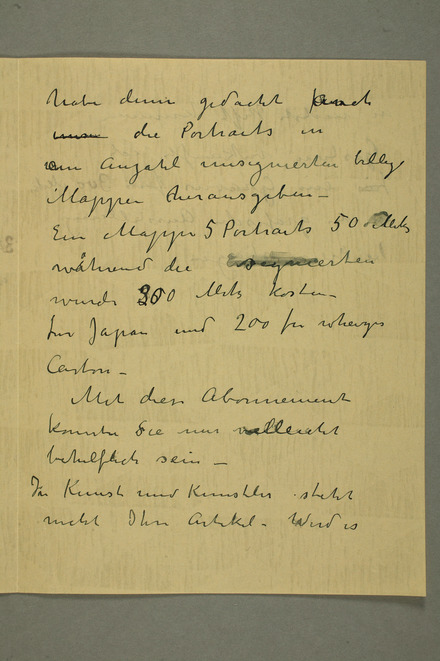 habe denn gedacht auch
die Portraits in
ein Anzahl unsignierten billige
Mappen herausgeben –
Ein Mappe 5 Portraits 50 Mk
während die signierten
wurde 300 Mk kosten –
für Japan und 200 für
Carton –
Mit diese Abonnement
konnten Sie mir vielleicht
behilflich sein –
In Kunst und Künstler steht
nicht Ihre Artikel – Wird es